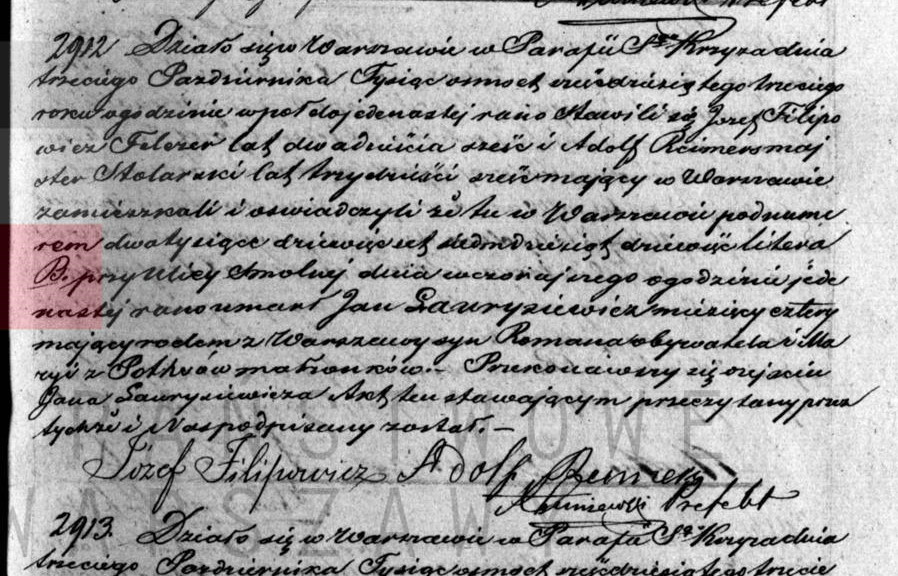 2912 Działo się w Warszawie w Parafii Sgo Krzyża dnia
trzeciego Pazdziernika Tysiąc osmset sześdziesiątego trzeciego
roku o godzinie wpół do jedenastej rano Stawili się Jozef Filipo
wicz Felczer lat dwadzieścia sześć i Adolf Reimers maj
ster Stolarski lat trzydzieści sześć mający w Warszawie
zamieszkali i oświadczyli że tu w Warszawie pod nume
rem dwa tysiące dziewięćset siedmdziesiąt dziewięć litera
B. przy Ulicy Smolnej dnia wczorajszego o godzinie jede
nastej rano umarł Jan Laurysiewicz miesięcy cztery
mający rodem z Warszawy syn Romana obywatela i Ma
ryi z małżonków. – Przekonawszy się o zejściu
Jana Laurysiewicza Akt ten stawającym przeczytany przez
tychże i Nas podpisany został. –
Józef Filipowicz Adolf
Prefekt
2913. Działo się w Warszawie w Parafii Sgo Krzyża dnia
trzeciego Pazdziernika Tysiąc osmset sześdziesiątego trzecie
PAŃSTWOWE
WARSZAWA